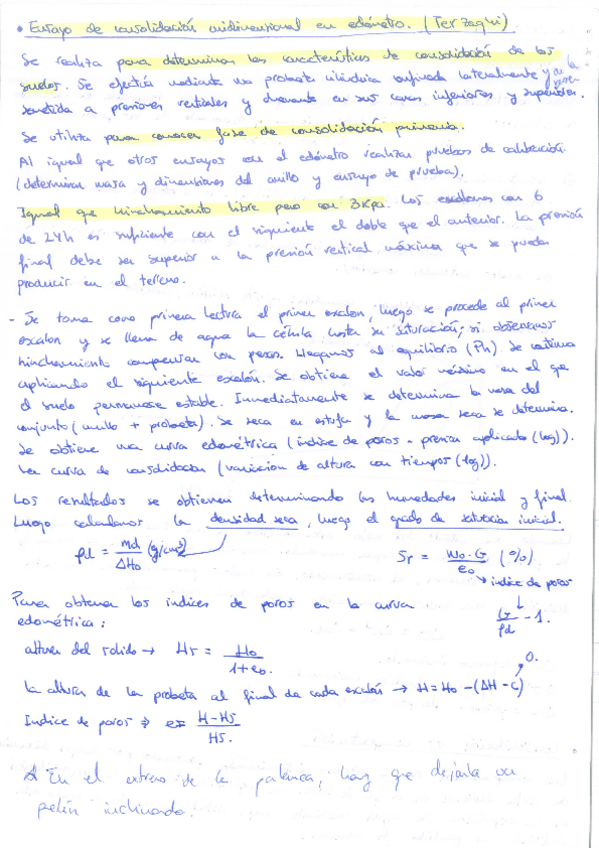 • Ensayo de consolidación unidimensional en edómetro. (Terzaqui)
Se realiza para determinar las características de consolidación de los
suelos. Se efectúa mediante una probeta cilíndrica confinada lateralmente y
sometida a presiones verticales y drenante en sus caras inferiores y superiores.
Se utiliza para conocer fase de consolidación primaria.
Al igual que otros ensayos con el edómetro realizar pruebas de calibración.
(determinar masa y dimensiones del anillo y ensayo de prueba).
Igual que hinchamiento libre pero con 3Kpa. Los escalones con 6
de 24h es suficiente con el siguiente el doble que el anterior. La presión
final debe ser superior a la presión vertical máxima que se pueda
producir en el terreno.
- Se toma como primera lectura el primer escalon, luego se procede al primer
escalon y se llena de agua la célula hasta su saturación; si observamos
hinchamiento compensar con pesas. Llegamos al equilibrio (Ph). Se continua
aplicando el siguiente escalón. Se obtiene el valor máximo en el que
el suelo permanece estable. Inmediatamente se determina la masa del
conjunto (anillo + probeta). Se seca en estufa y la masa seca se determina.
Se obtiene una curva edométrica (índice de poros - presión aplicada (log)).
La curva de consolidacion (variacion de altura con tiempos (log)).
Los resultados se obtienen determinando las humedades inicial y final.
Luego calculamos la densidad seca, luego el grado de saturación inicial.
ρd = md / ΔHo (g/cm³)
Sr = Wo · G / eo (%)
índice de poros
G / ρd - 1.
Para obtener los indices de poros en la curva
edométrica:
altura del solido → Hs = Ho / 1+eo.
0.
La altura de la probeta al final de cada escalón → H = Ho - (ΔH - c)
Indice de poros ⇒ e = H - Hs / Hs.
En el extremo de la palanca, hay que dejarla un
pelín inclinada.